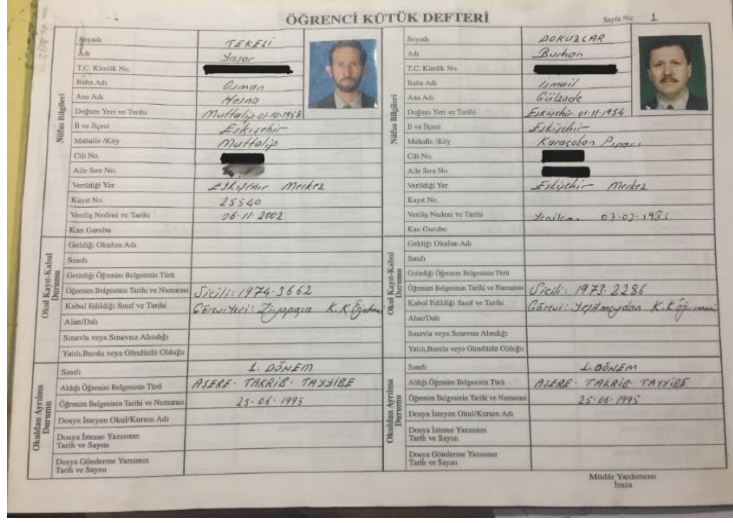 ÖĞRENCİ KÜTÜK DEFTERİ
Sayfa No: 1
Nüfus Bilgileri
Soyadı TEKELİ
Adı Yaşar
T.C. Kimlik No.
Baba Adı Osman
Ana Adı Hesna
Doğum Yeri ve Tarihi Muttalip-01-10-1958
İl ve İlçesi Eskişehir
Mahalle /Köy Muttalip
Cilt No.
Aile Sıra No.
Verildiği Yer Eskişehir Merkez
Kayıt No. 25540
Veriliş Nedeni ve Tarihi 06-11-2002
Kan Gurubu
Okul Kayıt-Kabul Durumu
Geldiği Okulun Adı
Sınıfı
Getirdiği Öğrenim Belgesinin Türü
Öğrenim Belgesinin Tarihi ve Numarası Sicili: 1974-3662
Kabul Edildiği Sınıf ve Tarihi Görev Yeri: Ziyapaşa K.K.
Alan/Dalı
Sınavla veya Sınavsız Alındığı
Yatılı,Burslu veya Gündüzlü Olduğu
Okuldan Ayrılma Durumu
Sınıfı 1. DÖNEM
Aldığı Öğrenim Belgesinin Türü AŞERE- TAKRİB- TAYYİBE
Öğrenim Belgesinin Tarihi ve Numarası 25-06-1995
Dosya İsteyen Okul/Kurum Adı
Dosya İsteme Yazısının
Tarih ve Sayısı
Dosya Gönderme Yazısının
Tarih ve Sayısı
Nüfus Bilgileri
Soyadı DOKUZLAR
Adı Burhan
T.C. Kimlik No.
Baba Adı İsmail
Ana Adı
Doğum Yeri ve Tarihi Eskişehir-01-11-1954
İl ve İlçesi Eskişehir
Mahalle /Köy Karaçoban Pınarı
Cilt No.
Aile Sıra No.
Verildiği Yer Eskişehir Merkez
Kayıt No.
Veriliş Nedeni ve Tarihi
Kan Gurubu
Okul Kayıt-Kabul Durumu
Geldiği Okulun Adı
Sınıfı
Getirdiği Öğrenim Belgesinin Türü
Öğrenim Belgesinin Tarihi ve Numarası Sicili: 1973-2286
Kabul Edildiği Sınıf ve Tarihi Görevi: Yeşilmeydan K.K.
Alan/Dalı
Sınavla veya Sınavsız Alındığı
Yatılı,Burslu veya Gündüzlü Olduğu
Okuldan Ayrılma Durumu
Sınıfı 1. DÖNEM
Aldığı Öğrenim Belgesinin Türü AŞERE- TAKRİB- TAYYİBE
Öğrenim Belgesinin Tarihi ve Numarası 25-06-1995
Dosya İsteyen Okul/Kurum Adı
Dosya İsteme Yazısının
Tarih ve Sayısı
Dosya Gönderme Yazısının
Tarih ve Sayısı
Müdür Yardımcısı
İmza